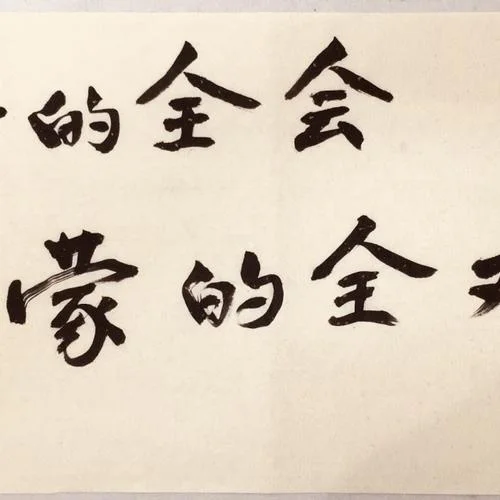 的全会
蒙的全